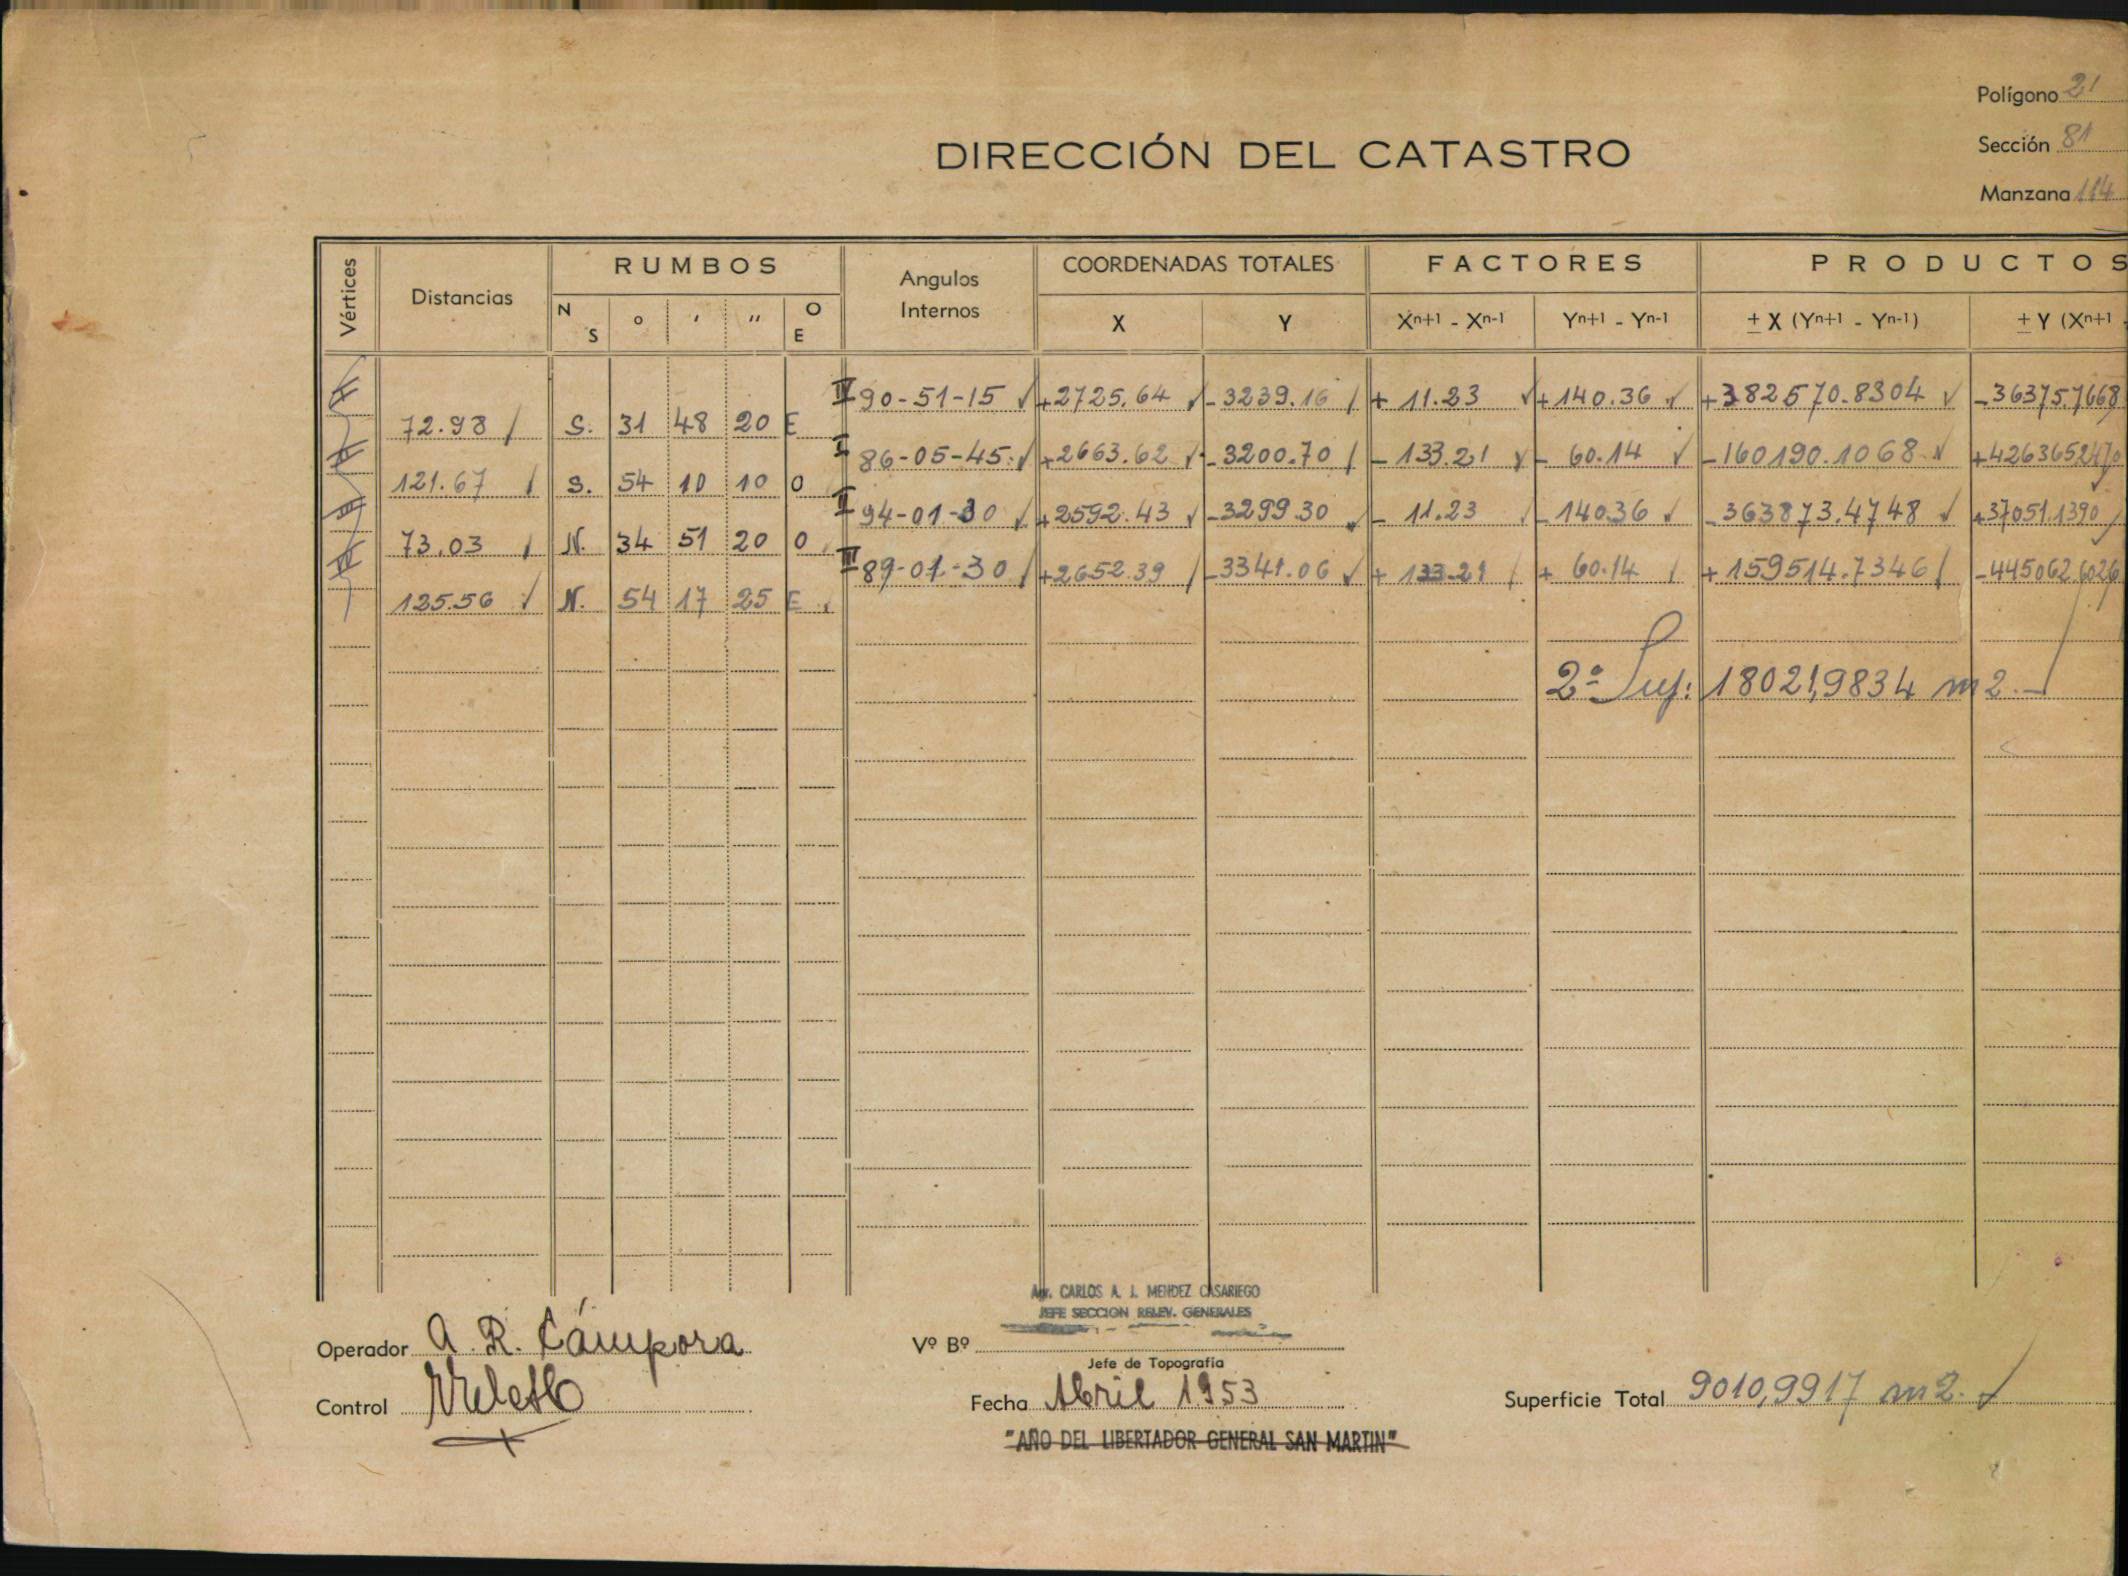 Polígono 21
DIRECCIÓN DEL CATASTRO
Sección 81
Manzana 114
Vértices Distancias RUMBOS Angulos Internos COORDENADAS TOTALES FACTORES PRODUCTOS
N S ° ' " O E X Y Xn+1 - Xn-1 Yn+1 - Yn-1 ± X (Yn+1 - Yn-1) ± Y (Xn+1
IV 90-51-15 +2725.64 -3239.16 + 11.23 +140.36 +382570.8304 -36375.7668
72.98 S. 31 48 20 E
I 86-05-45 +2663.62 -3200.70 - 133.21 - 60.14 -160190.1068 +426365.2470
121.67 S. 54 10 10 O
II 94-01-30 +2592.43 -3299.30 - 11.23 -140.36 -363873.4748 +37051.1390
73.03 N. 34 51 20 O
III 89-01-30 +2652.39 -3341.06 + 133.21 + 60.14 +159514.7346 -445062.6026
125.56 N. 54 17 25 E
2ª Sup: 18021,9834 m2.
Agr. CARLOS A. J. MENDEZ CASARIEGO
JEFE SECCION RELEV. GENERALES
Operador A. R. Cámpora
Vº Bº
Jefe de Topografía
Control
Fecha Abril 1953
Superficie Total 9010,9917 m2.
"AÑO DEL LIBERTADOR GENERAL SAN MARTIN"